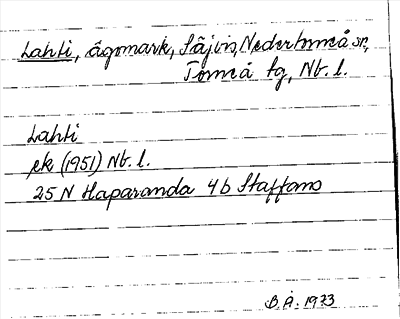 Lahti, ägomark, Säivis, Nedertorneå sn,
Torneå tg, Nb. l.
Lahti
ek (1951) Nb. l.
25 N Haparanda 4b Staffans
B. Å. 1973